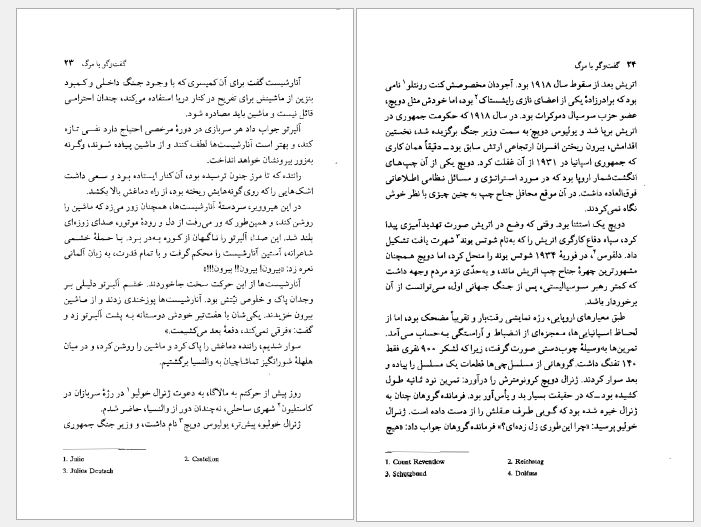 گفت‌وگو با مرگ ۲۳
آنارشیست گفت برای آن کمیسری که با وجود جنگ داخلی و کمبود
بنزین از ماشینش برای تفریح در کنار دریا استفاده می‌کند، چندان احترامی
قائل نیست و ماشین باید مصادره شود.
آلبرتو جواب داد هر سربازی در دورهٔ مرخصی احتیاج دارد نفسی تازه
کند، و بهتر است آنارشیست‌ها لطف کنند و از ماشین پیاده شوند، وگرنه
به‌زور بیرونشان خواهد انداخت.
راننده که تا مرز جنون ترسیده بود، آن کنار ایستاده بود و سعی داشت
اشک‌هایی را که روی گونه‌هایش ریخته بود، از راه دماغش بالا بکشد.
در این هیر و بیر، سردستهٔ آنارشیست‌ها، همچنان زور می‌زد که ماشین را
روشن کند، و همین‌طور که ور می‌رفت از دل و رودهٔ موتور، صدای زوزه‌ای
بلند شد. این صدا، آلبرتو را ناگهان از کوره به‌در برد. با حملهٔ خشمی
شاعرانه، آستین آنارشیست را محکم گرفت و با تمام قدرت، به زبان آلمانی
نعره زد: «بیرون! بیرون!! بیرون!!!»
آنارشیست‌ها از این حرکت سخت جاخوردند. خشم آلبرتو دلیلی بر
وجدان پاک و خلوص نیّتش بود. آنارشیست‌ها پوزخندی زدند و از ماشین
بیرون خزیدند. یکی‌شان با هفت‌تیر خودش دوستانه به پشت آلبرتو زد و
گفت: «فرقی نمی‌کند، دفعهٔ بعد می‌کشیمت.»
سوار شدیم، راننده دماغش را پاک کرد و ماشین را روشن کرد، و در میان
هلهلهٔ شورانگیز تماشاچیان به والنسیا برگشتیم.
روز پیش از حرکتم به مالاگا، به دعوت ژنرال خولیو۱ در رژهٔ سربازان در
کاستلیون۲ شهری ساحلی، نه‌چندان دور از والنسیا، حاضر شدم.
ژنرال خولیو، پیش‌تر، یولیوس دویچ۳ نام داشت، و وزیر جنگ جمهوری
1. Julio 2. Castellon
3. Julius Deutsch
۲۴ گفت‌وگو با مرگ
اتریش بعد از سقوط سال ۱۹۱۸ بود. آجودان مخصوصش کنت رونتلو۱ نامی
بود که برادرزادهٔ یکی از اعضای نازی رایشستاگ۲ بود، اما خودش مثل دویچ،
عضو حزب سوسیال دموکرات بود. در سال ۱۹۱۸ که حکومت جمهوری در
اتریش برپا شد و یولیوس دویچ به سمت وزیر جنگ برگزیده شد، نخستین
اقدامش، بیرون ریختن افسران ارتجاعی ارتش سابق بود ـ دقیقاً همان کاری
که جمهوری اسپانیا در ۱۹۳۱ از آن غفلت کرد. دویچ یکی از آن چپ‌های
انگشت‌شمار اروپا بود که در مورد استراتژی و مسائل نظامی اطلاعاتی
فوق‌العاده داشت. در آن موقع محافل جناح چپ به چنین چیزی با نظر خوش
نگاه نمی‌کردند.
دویچ یک استثنا بود. وقتی که وضع در اتریش صورت تهدیدآمیزی پیدا
کرد، سپاه دفاع کارگری اتریش را که به‌نام شوتس بوند۳ شهرت یافت تشکیل
داد. دلفوس۴، در فوریهٔ ۱۹۳۴ شوتس بوند را منحل کرد، اما دویچ همچنان
مشهورترین چهرهٔ جناح چپ اتریش ماند، و به‌حدّی نزد مردم وجهه داشت
که کمتر رهبر سوسیالیستی، پس از جنگ جهانی اول، می‌توانست از آن
برخوردار باشد.
طبق معیارهای اروپایی، رژه نمایشی رقت‌بار و تقریباً مضحک بود، اما از
لحاظ اسپانیایی‌ها، معجزه‌ای از انضباط و آراستگی به‌حساب می‌آمد.
تمرین‌ها به‌وسیلهٔ چوب‌دستی صورت گرفت، زیرا که لشکر ۹۰۰ نفری فقط
۱۴۰ تفنگ داشت. گروهانی از مسلسل‌چی‌ها قطعات یک مسلسل را پیاده و
بعد سوار کردند. ژنرال دویچ کرونومترش را درآورد: تمرین نود ثانیه طول
کشیده بود ـ که در حقیقت بسیار بد و یأس‌آور بود. فرمانده گروهان چنان به
ژنرال خیره شده بود که گویی طرف عقلش را از دست داده است. ژنرال
خولیو پرسید: «چرا این‌طوری زل زده‌ای؟» فرمانده گروهان جواب داد: «هیچ
1. Count Reventlow 2. Reichstag
3. Schutzbund 4. Dolfuss